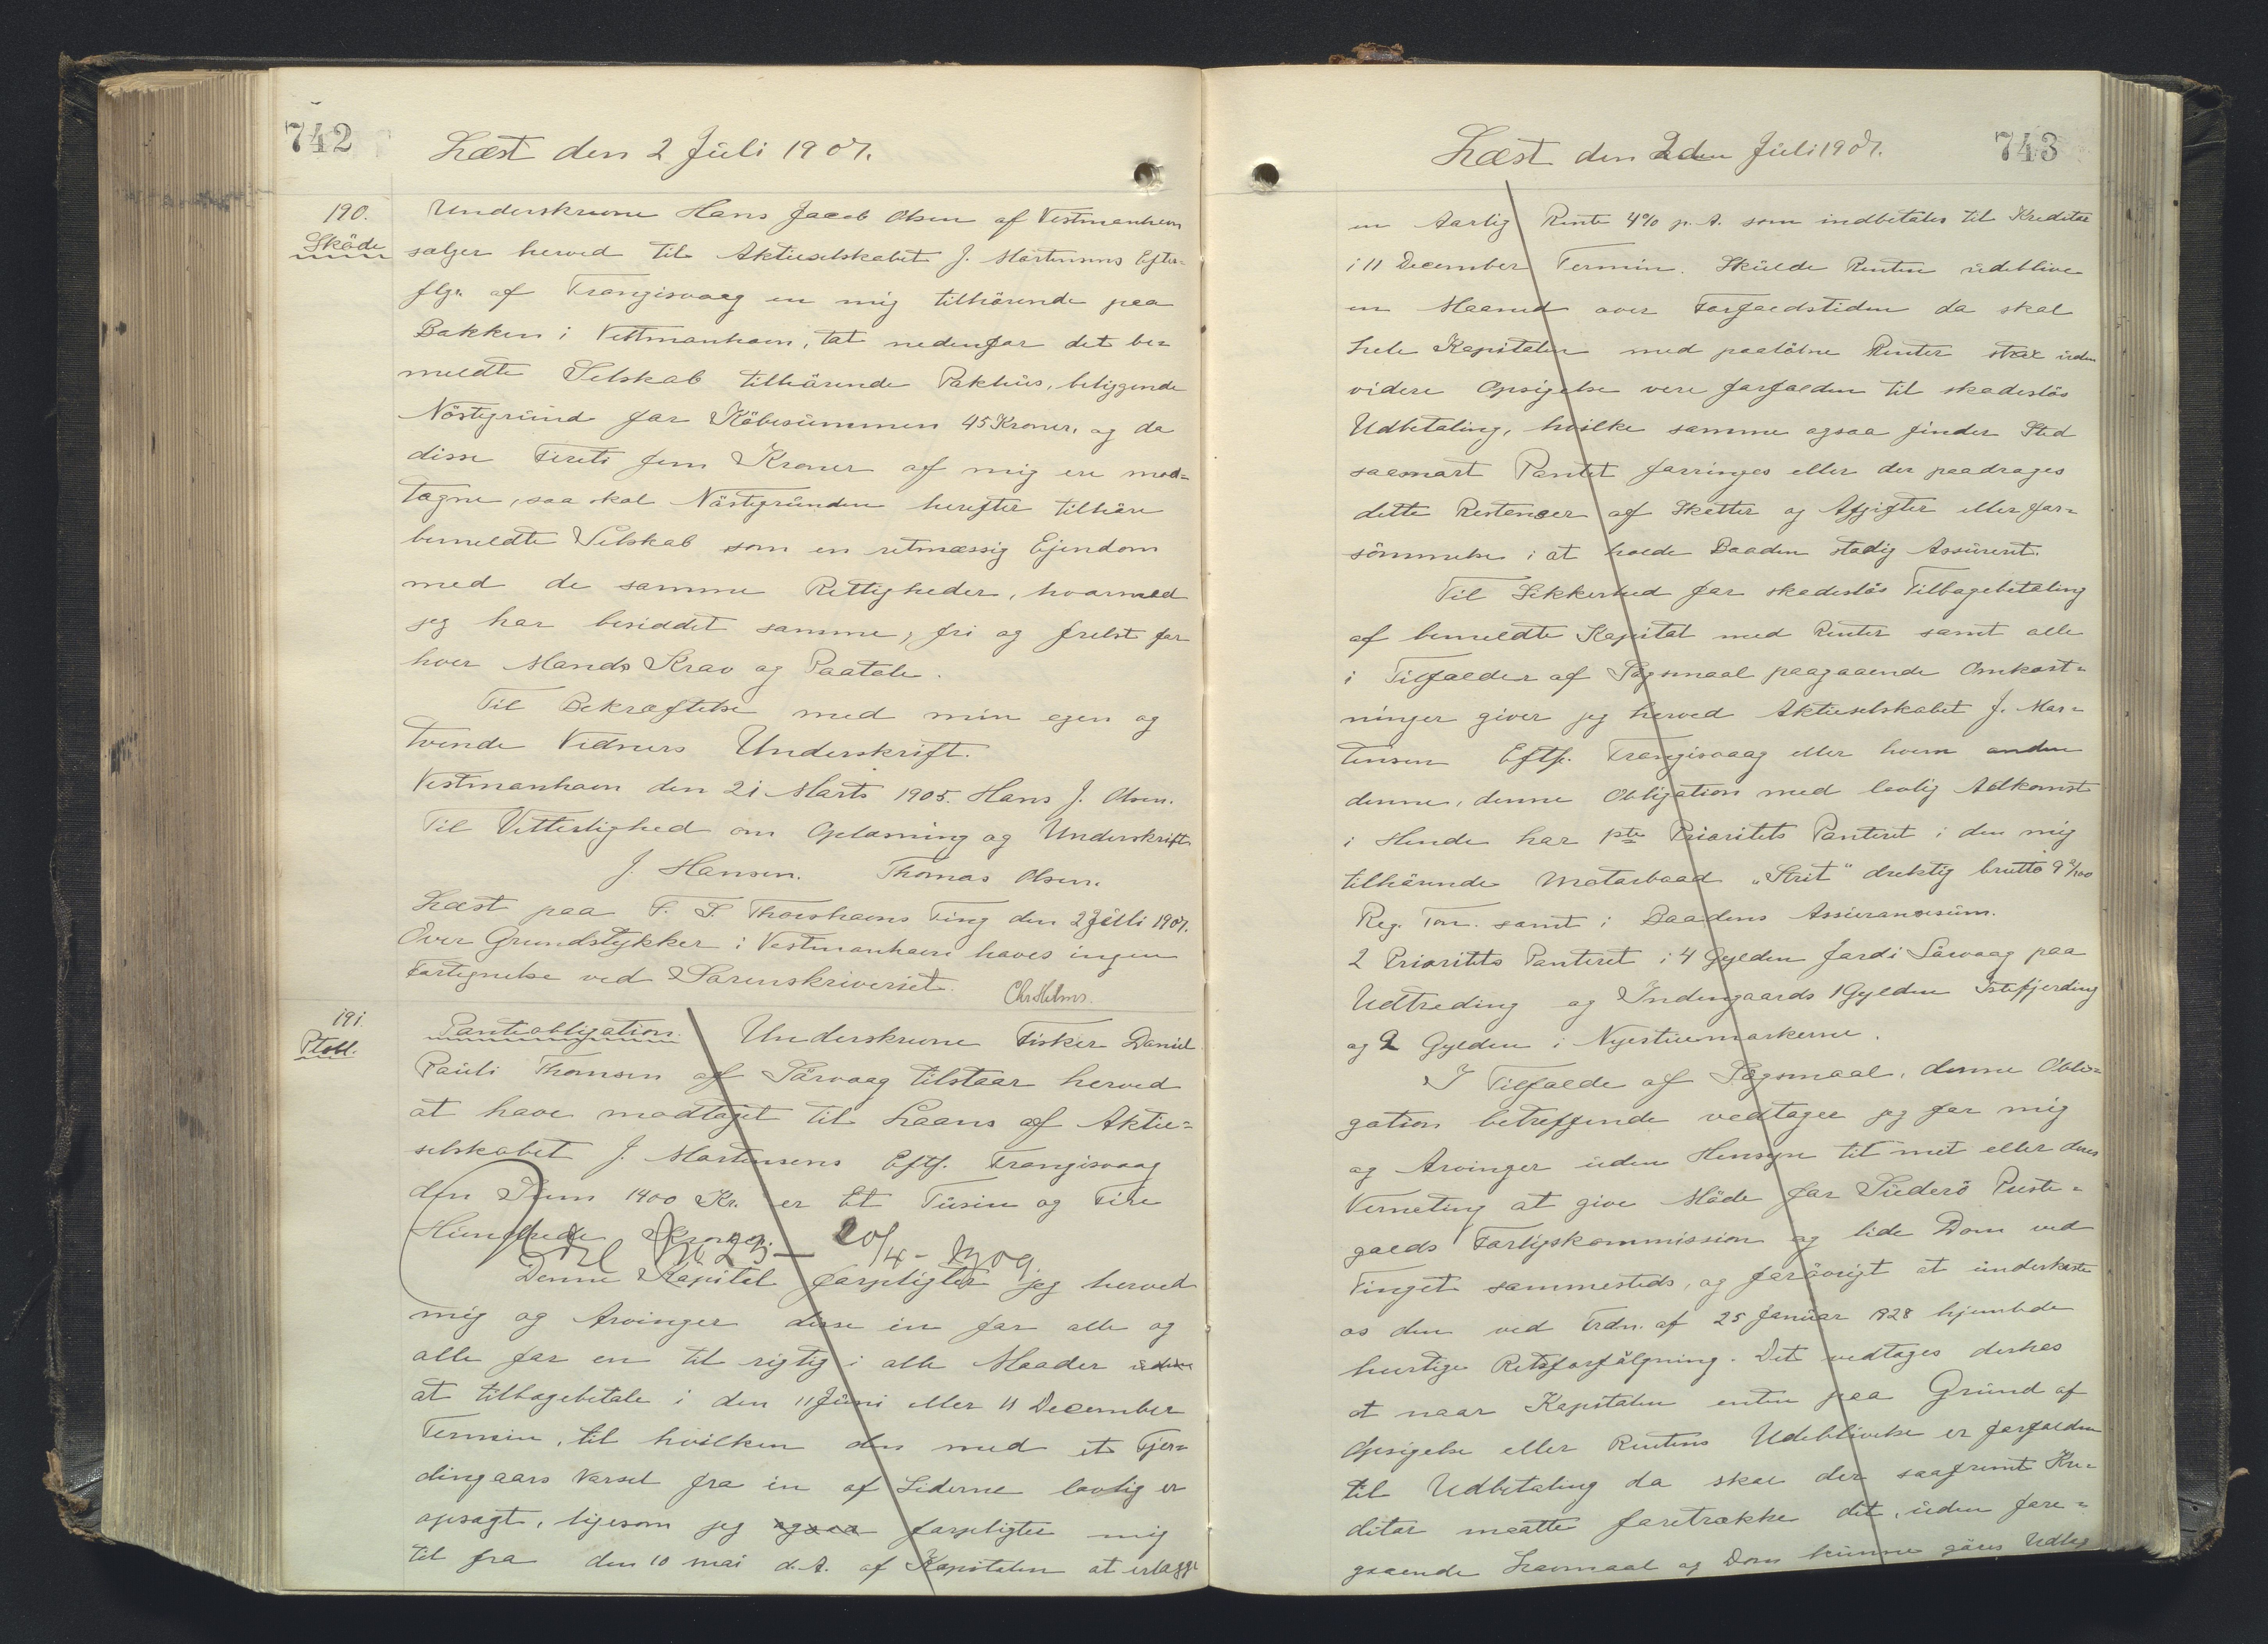 742
Læst den 2 Juli 1907.
190.
Sköde
Underskrevne Hans Jacob Olsen af Vestmanhavn
sælger herved til Aktieselskabet J. Mortensens Efter-
flgr. af Trangisvaag en mig tilhörende paa
Bakken i Vestmanhavn, tæt nedenfor det be-
meldte Selskab tilhörende Pakhus, beliggende
Nöstgrund for Köbesummen 45 Kroner, og da
disse Fireti fem Kroner af mig ere mod-
tagne, saa skal Nöstgrunden herefter tilhöre
bemeldte Selskab som en retmæssig Ejendom
med de samme Rettigheder, hvormed
jeg har besiddet samme, fri og frelst for
hver Mands Krav og Paatale.
Til Bekræftelse med min egen og
tvende Vidners Underskrift.
Vestmanhavn den 21 Marts 1905. Hans J. Olsen.
Til Vitterlighed om Oplæsning og Underskrift
J. Hansen. Thomas Olsen.
Læst paa S. S. Thorshavns Ting den 2 Juli 1907.
Over Grundstykker i Vestmanhavn haves ingen
Fortegnelse ved Sorenskriveriet.
Chr. Helms.
191.
Ptobl.
Panteobligation. Underskrevne Fisker Daniel
Pauli Thomsen af Sörvaag tilstaar herved
at have modtaget til Laans af Aktie-
selskabet J. Mortensens Eftf. Trangisvaag
den Sum 1400 Kr. er Et Tusin og Fire
Hundrede Kroner.
20/4 - 1909
Denne Kapital forpligter jeg herved
mig og Arvinger disse en for alle og
alle for en til rigtig i alle Maader uden
at tilbagebetale i den 11 Juni eller 11 December
Termin, til hvilken den med et Fjer-
dingaars Varsel fra en af Siderne lovlig er
opsagt, ligesom jeg ogsaa forpligter mig
til fra den 10 mai d. A. af Kapitalen at erlægge
743
Læst den 2den Juli 1907.
en Aarlig Rente 4% p. A. som indbetales til Kreditor
i 11 December Termin. Skulde Renten udeblive
en Maaned over Forfaldstiden da skal
hele Kapitalen med paalöbne Renter strax uden
videre Opsigelse være forfalden til skadeslös
Udbetaling, hvilke samme ogsaa finder Sted
saasnart Pantet forringes eller der paadrages
dette Restancer af Skatter og Afgifter eller for-
sömmelse i at holde Baaden stadig Assureret.
Til Sikkerhed for skadeslös Tilbagebetaling
af bemeldte Kapital med Renter samt alle
i Tilfælder af Sögsmaal paagaaende Omkost-
ninger giver jeg herved Aktieselskabet J. Mor-
tensen Eftf. Trangisvaag eller hvem anden
denne, denne Obligation med lovlig Adkomst
i Hænde har 1ste Prioritets Panteret i den mig
tilhörende Motorbaad "Strit" drektig brutto 9 2/100
Reg. Ton. samt i Baadens Assurancesum.
2 Prioritets Panteret i 4 Gylden Jord i Sörvaag paa
Udtreding og Indengaards 1 Gylden Istefjerding
og 2 Gylden i Nyestuemarkerne.
I Tilfælde af Sögsmaal, denne Obli-
gation betreffende vedtager jeg for mig
og Arvinger uden Hensyn til mit eller deres
Verneting at give Möde for Suderö Præste-
gælds Forligskommission og lide Dom ved
Tinget sammesteds, og foröwrigt at underkaste
os den ved Frdn. af 25 Januar 1828 hjemlede
hurtige Retsforfölgning. Det vedtages derhos
at naar Kapitalen enten paa Grund af
Opsigelse eller Rentens Udeblivelse er forfalden
til Udbetaling da skal der saafremt Kre-
ditor maatte foretrække det, uden fore-
gaaende Lavmaal og Dom kunne göres Udlæg